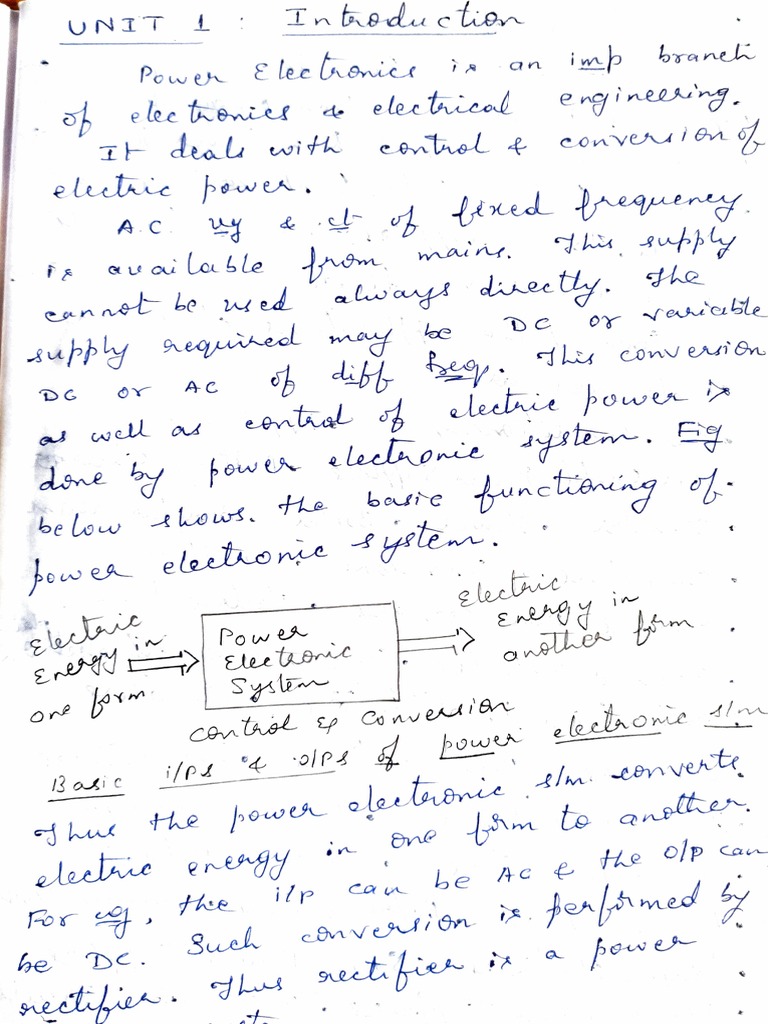 UNIT 1 : Introduction
Power Electronics is an imp branch
of electronics & electrical engineering.
It deals with control & conversion of
electric power.
A.C vg & ct of fixed frequency
is available from mains. This supply
cannot be used always directly. The
supply required may be DC or variable
DC or AC of diff freq. This conversion
as well as control of electric power is
done by power electronic system. Fig
below shows the basic functioning of
power electronic system.
Electric
Energy in
one form
Power
Electronic
System
Electric
Energy in
another form
control & conversion
Basic i/ps & o/ps of power electronic s/m
Thus the power electronic s/m converts
electric energy in one form to another.
For eg, the i/p can be AC & the o/p can
be DC. Such conversion is performed by
rectifier. Thus rectifier is a power